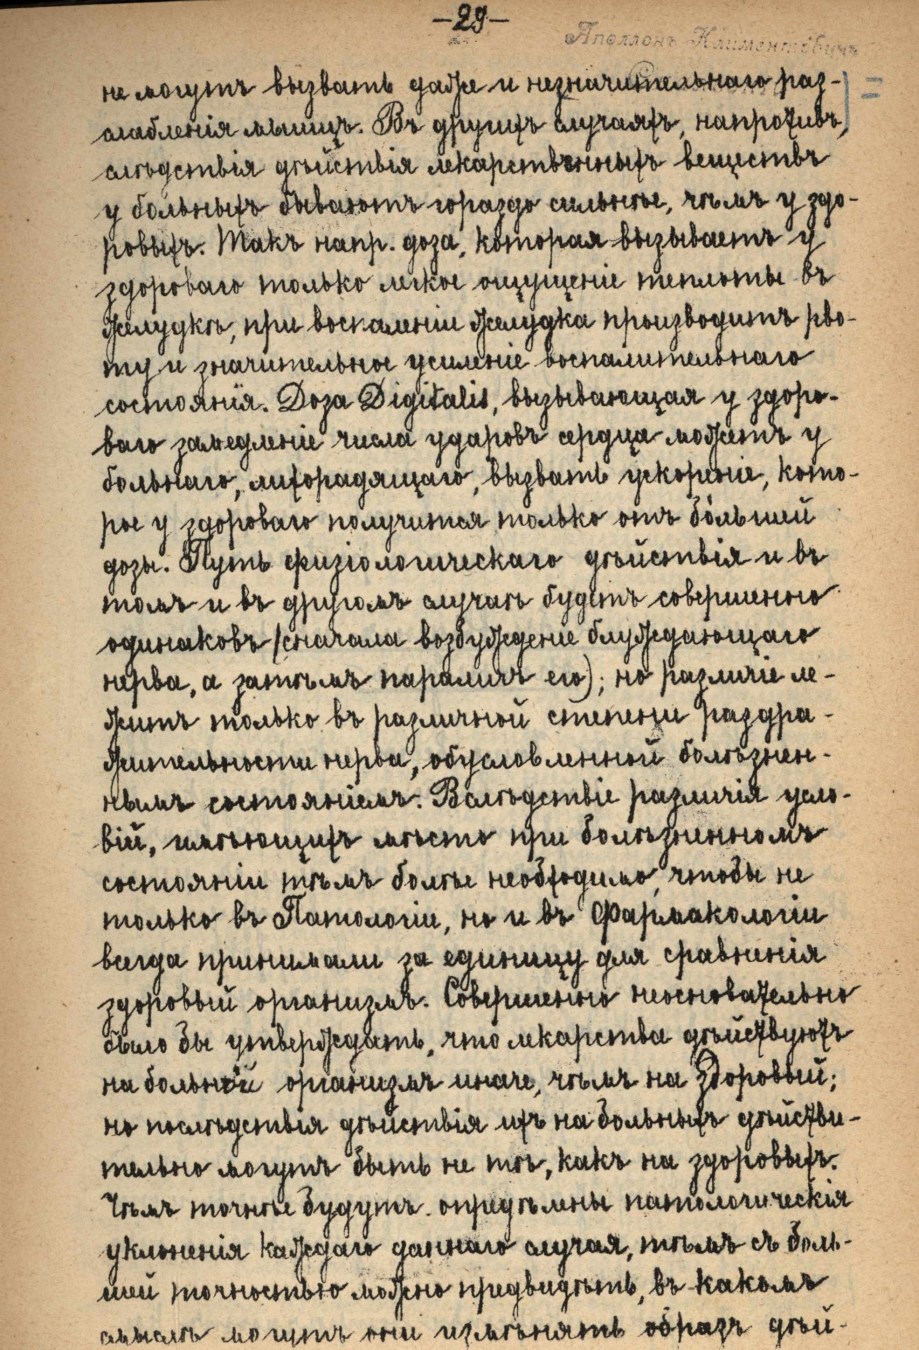 -29-
Аполлонъ Климентовичъ
не могутъ вызвать даже и незначительнаго раз-
слабленія мышцъ. Въ другихъ случаяхъ, напротивъ,
слѣдствія дѣйствія лекарственныхъ веществъ
у больныхъ бываютъ гораздо сильнѣе, чѣмъ у здо-
ровыхъ. Такъ напр. доза, которая вызываетъ у
здороваго только легкое ощущеніе теплоты въ
желудкѣ, при воспаленіи желудка производитъ рво-
ту и значительное усиленіе воспалительнаго
состоянія. Доза Digitalis, вызывающая у здоро-
ваго замедленіе числа ударовъ сердца можетъ у
больнаго, лихорадящаго, вызвать ускореніе, кото-
рое у здороваго получится только отъ бо́льшей
дозы. Путь физіологическаго дѣйствія и въ
томъ и въ другомъ случаѣ будетъ совершенно
одинаковъ (сначала возбужденіе блуждающаго
нерва, а затѣмъ параличъ его); но различіе ле-
житъ только въ различной степени раздра-
жительности нерва, обусловленной болѣзнен-
нымъ состояніемъ. Вслѣдствіе различія усло-
вій, имѣющихъ мѣсто при болѣзненномъ
состояніи тѣмъ болѣе необходимо, чтобы не
только въ Патологіи, но и въ Фармакологіи
всегда принимали за единицу для сравненія
здоровый организмъ. Совершенно неосновательно
было бы утверждать, что лекарства дѣйствуютъ
на больной организмъ иначе, чѣмъ на здоровый;
но послѣдствія дѣйствія ихъ на больныхъ дѣйстви-
тельно могутъ быть не тѣ, какъ на здоровыхъ.
Чѣмъ точнѣе будутъ опредѣлены патологическія
уклоненія каждаго даннаго случая, тѣмъ съ боль-
шей точностью можно предвидѣть, въ какомъ
смыслѣ могутъ они измѣнять образъ дѣй-